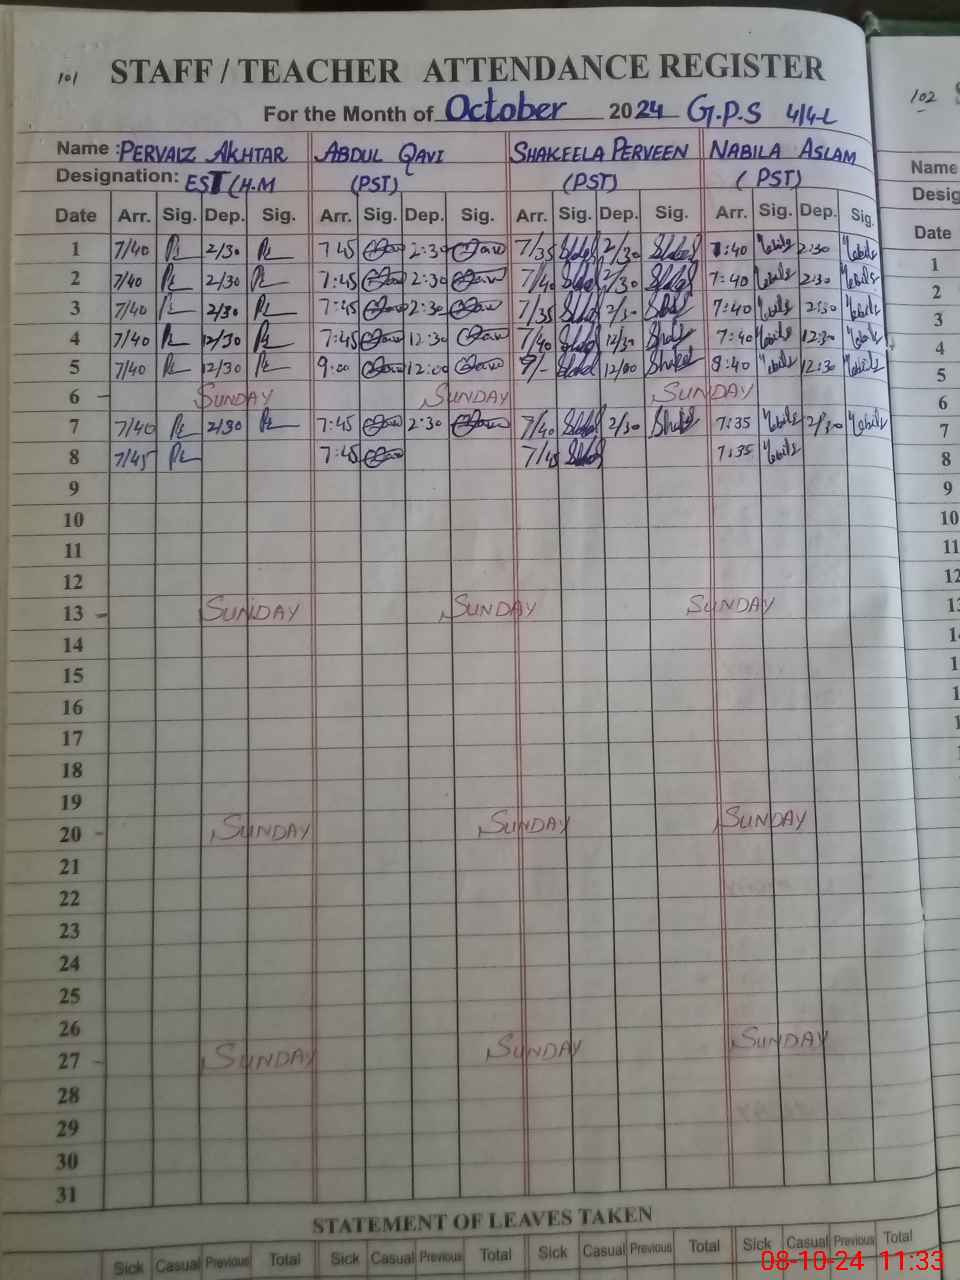 101 STAFF / TEACHER ATTENDANCE REGISTER
For the Month of October 2024 G.P.S 4/4-L
Name : PERVAIZ AKHTAR ABDUL QAVI SHAKEELA PERVEEN NABILA ASLAM
Designation: EST (H.M (PST) (PST) (PST)
Date Arr. Sig. Dep. Sig. Arr. Sig. Dep. Sig. Arr. Sig. Dep. Sig. Arr. Sig. Dep. Sig.
1 7/40 2/30 7:45 2:30 7/35 2/30 7:40 2:30
2 7/40 2/30 7:45 2:30 7/40 2/30 7:40 2:30
3 7/40 2/30 7:45 2:30 7/35 2/30 7:40 2:30
4 7/40 12/30 7:45 12:30 7/40 12/30 7:40 12:30
5 7/40 12/30 9:00 12:00 9/- 12/00 8:40 12:30
6 - SUNDAY SUNDAY SUNDAY
7 7/40 2/30 7:45 2:30 7/40 2/30 7:35 2/30
8 7/45 7:45 7/45 7:35
9
10
11
12
13 - SUNDAY SUNDAY SUNDAY
14
15
16
17
18
19
20 - SUNDAY SUNDAY SUNDAY
21
22
23
24
25
26
27 - SUNDAY SUNDAY SUNDAY
28
29
30
31
STATEMENT OF LEAVES TAKEN
Sick Casual Previous Total Sick Casual Previous Total Sick Casual Previous Total Sick Casual Previous Total
102
Name
Desig
Date
1
2
3
4
5
6
7
8
9
10
11
12
08-10-24 11:33